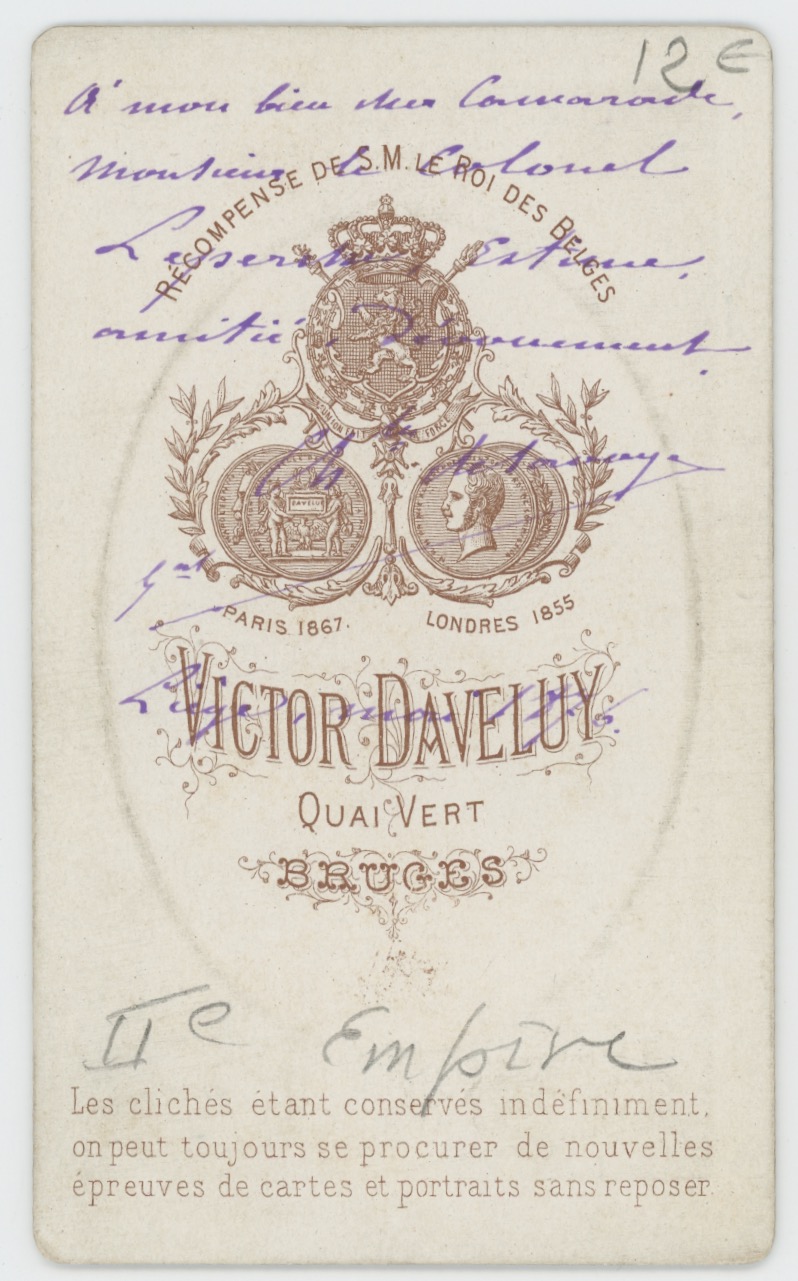 12 €
A mon bien cher Camarade,
Monsieur le Colonel
Estime,
amitié, Dévouement.
RÉCOMPENSE DE S.M. LE ROI DES BELGES
L'UNION FAIT LA FORCE
DAVELUY
PARIS 1867.
LONDRES 1855
VICTOR DAVELUY
Liège, 
QUAI VERT
BRUGES
IIe Empire
Les clichés étant conservés indéfiniment,
on peut toujours se procurer de nouvelles
épreuves de cartes et portraits sans reposer.